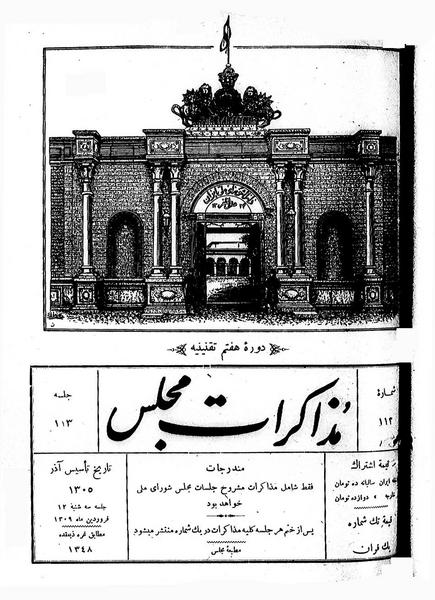 دورهٔ هفتم تقنینیه
شمارهٔ
۱۱۲
مذاکرات مجلس
جلسه
۱۱۳
قیمة اشتراك
ایران سالیانه ده تومان
دوازده تومان
قیمة تك شماره
یك قران
مندرجات
فقط شامل مذاکرات مشروح جلسات مجلس شورای ملی
خواهد بود
پس از ختم هر جلسه کلیه مذاکرات در یك شماره منتشر میشود
مطبعهٔ مجلس
تاریخ تأسیس آذر
۱۳۰۵
جلسه سه شنبهٔ ۱۲
فروردین ماه ۱۳۰۹
مطابق غره ذیقعده
۱۳۴۸